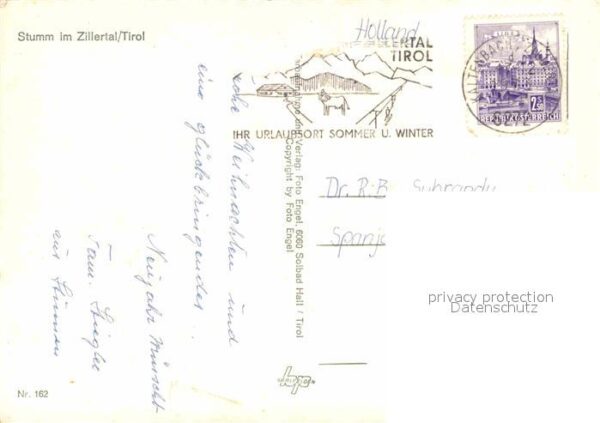 Stumm im Zillertal/Tirol
Holland
ZILLERTAL
TIROL
IHR URLAUBSORT SOMMER U. WINTER
KALTENBACH
6272
LINZ
2.50
REPUBLIK ÖSTERREICH
Frohe Weihnachten und
ein glückbringendes
Neujahr wünscht
Fam.
aus Stumm
Verlag: Foto Engel, 6060 Solbad Hall / Tirol
Copyright by Foto Engel
Dr. R.B.
Spanja
Nr. 162
privacy protection
Datenschutz